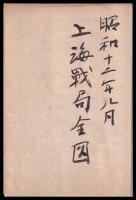 昭和十二年九月
上海戰局全図